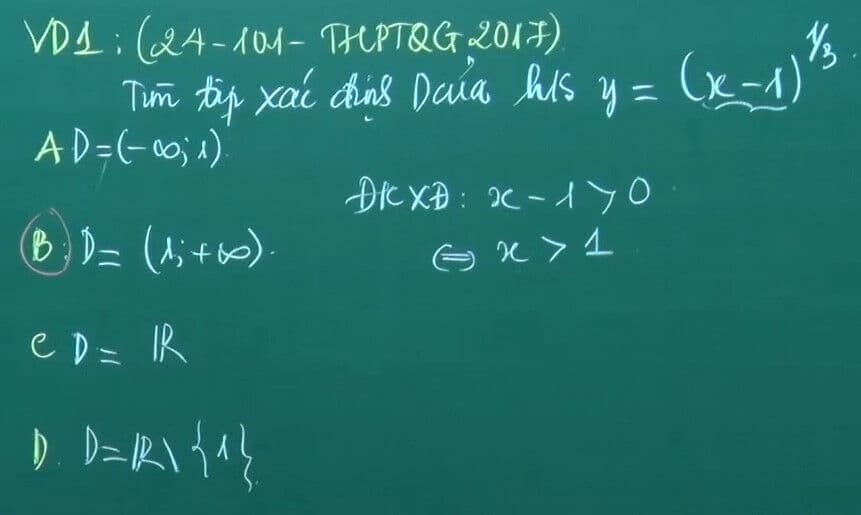 VD1: (24-101-THPTQG 2017)
Tìm tập xác định D của h/s y = (x-1)^1/3.
A D=(-∞; 1).
ĐKXĐ: x - 1 > 0
B. D= (1; +∞).
⇔ x > 1
C D= ℝ
D. D=ℝ\{1}.